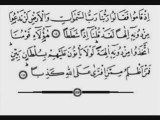 إِذْ قَامُوا۟ فَقَالُوا۟ رَبُّنَا رَبُّ السَّمَٰوَٰتِ وَالْأَرْضِ لَن نَّدْعُوَا۟
مِن دُونِهِۦٓ إِلَٰهًا لَّقَدْ قُلْنَآ إِذًا شَطَطًا ۝ هَٰٓؤُلَآءِ قَوْمُنَا
ٱتَّخَذُوا۟ مِن دُونِهِۦٓ ءَالِهَةً لَّوْلَا يَأْتُونَ عَلَيْهِم بِسُلْطَٰنٍۭ بَيِّنٍ
فَمَنْ أَظْلَمُ مِمَّنِ ٱفْتَرَىٰ عَلَى ٱللَّهِ كَذِبًا ۝